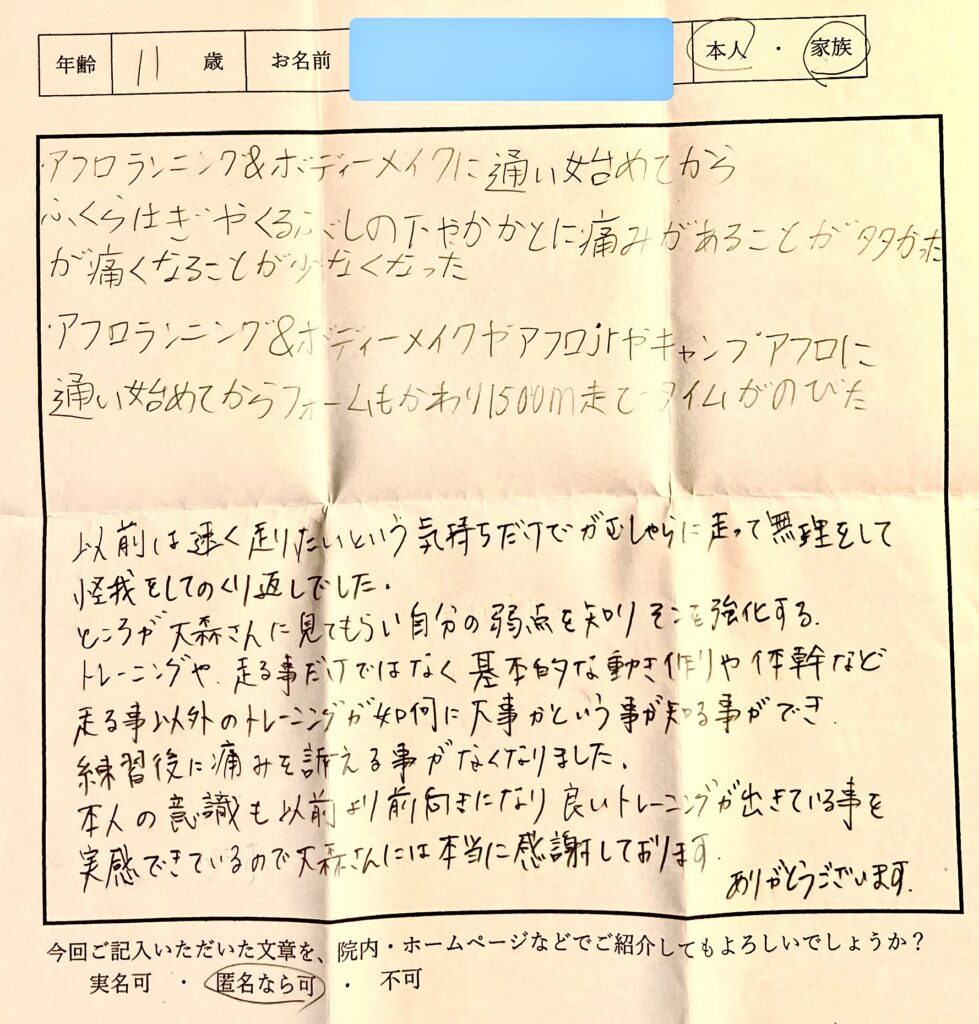 年齢 11 歳 お名前 本人 ・ 家族
・アフロランニング&ボディーメイクに通い始めてから
ふくらはぎやくるぶしの下やかかとに痛みがあることが多かった
が痛くなることが少なくなった
・アフロランニング&ボディーメイクやアフロjrやキャンプアフロに
通い始めてからフォームもかわり1500m走でタイムがのびた
以前は速く走りたいという気持ちだけでがむしゃらに走って無理をして
怪我をしてのくり返しでした。
ところが大森さんに見てもらい自分の弱点を知りそこを強化する、
トレーニングや、走る事だけではなく基本的な動き作りや体幹など
走る事以外のトレーニングが如何に大事かという事が知る事ができ、
練習後に痛みを訴える事がなくなりました。
本人の意識も以前より前向きになり良いトレーニングが出きている事を
実感できているので大森さんには本当に感謝しております。
ありがとうございます。
今回ご記入いただいた文章を、院内・ホームページなどでご紹介してもよろしいでしょうか？
実名可 ・ 匿名なら可 ・ 不可